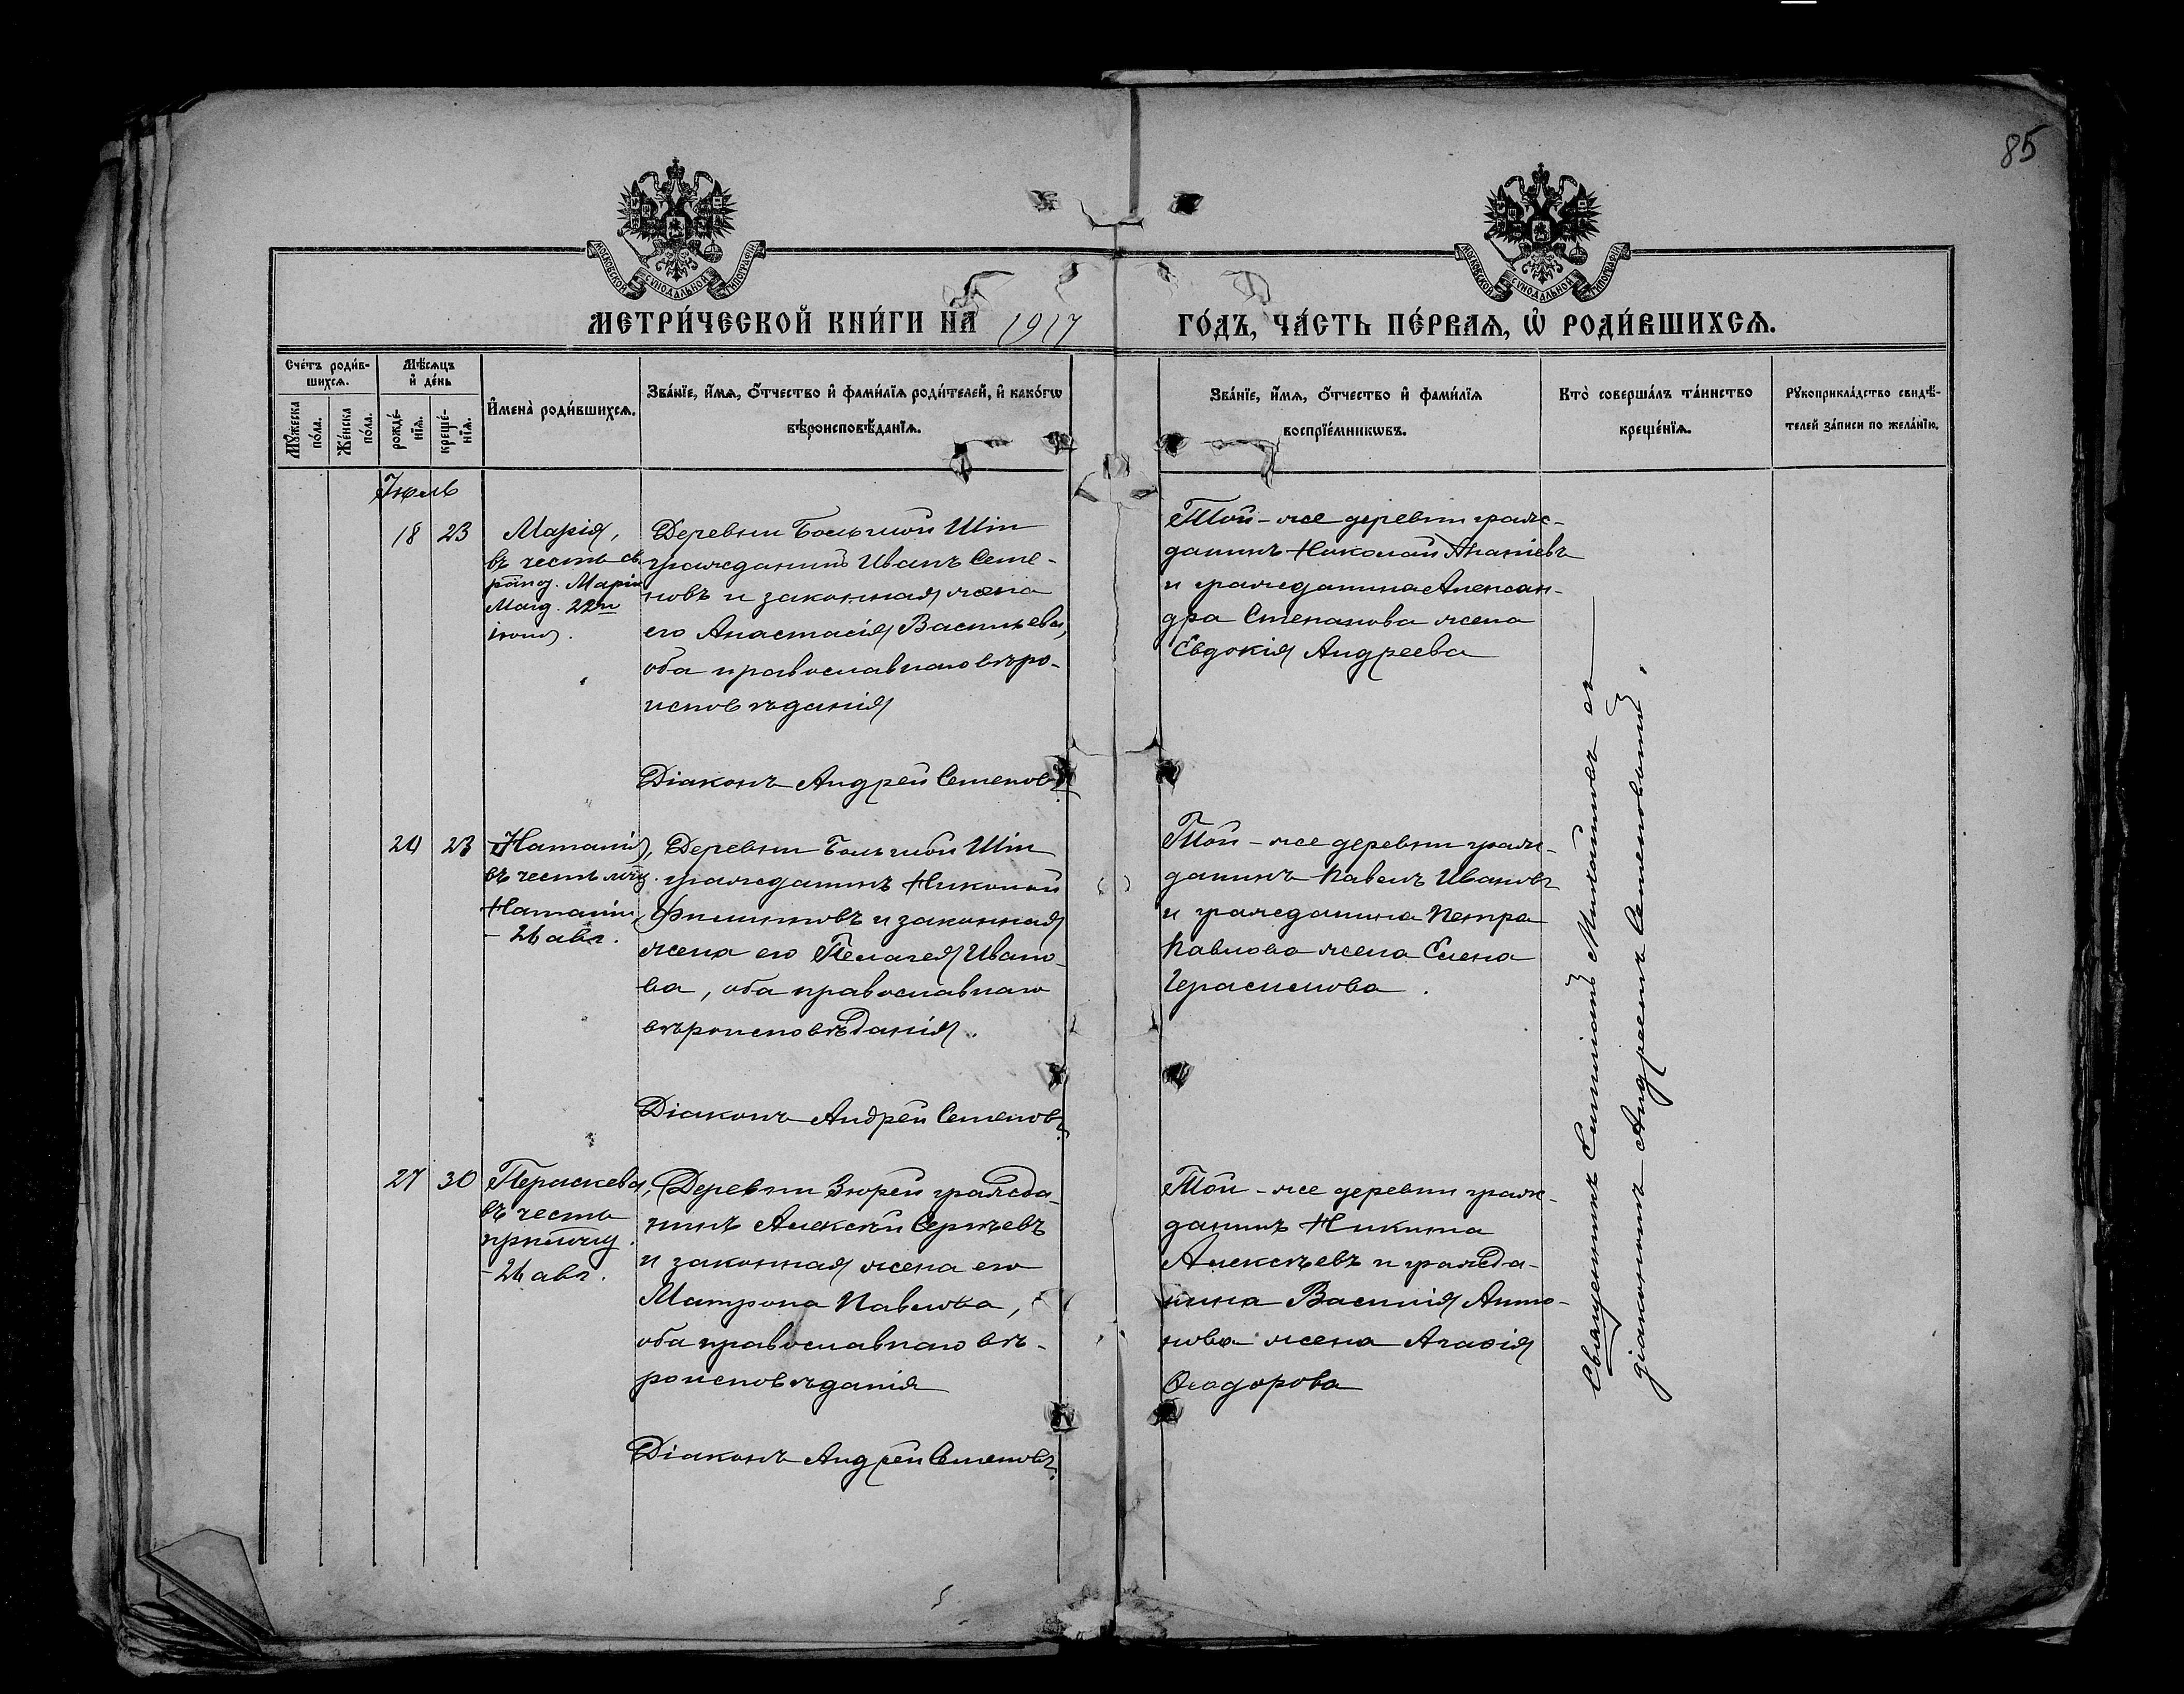 85
МОСКОВСКОЙ СѴНОДАЛЬНОЙ ТИПОГРАФІИ
МОСКОВСКОЙ СѴНОДАЛЬНОЙ ТИПОГРАФІИ
МЕТРИ́ЧЕСКОЙ КНИ́ГИ НА 1917 ГО́ДЪ, ЧА́СТЬ ПЕ́РВАѦ, Ѡ҆ РОДИ́ВШИХСѦ.
Сче́тъ роди́в-
шихсѧ.
Мѣ́сѧцъ
и҆ де́нь
Мꙋ́жеска
по́ла.
Же́нска
по́ла.
рожде́-
нїѧ.
креще́-
нїѧ.
И҆мена̀ роди́вшихсѧ.
Зва́нїе, и҆́мѧ, ѻ҆́тчество и҆ фами́лїѧ роди́телей, и҆ како́гѡ
вѣроисповѣ́данїѧ.
Зва́нїе, и҆́мѧ, ѻ҆́тчество и҆ фами́лїѧ
воспрїе́мникѡвъ.
Кто̀ соверша́лъ та́инство
креще́нїѧ.
Рꙋкоприкла́дство свидѣ́-
телей за́писи по жела́нїю.
Іюль
18 23
Марія,
въ честь св.
рапноап. Маріи
Магд. 22го
іюля.
Деревни Большой Шіи
гражданинъ Иванъ Семе-
новъ и законная жена
его Анастасія Васильева,
оба православнаго вѣро-
исповѣданія
Діаконъ Андрей Семеновъ.
Той-же деревни граж-
данинъ Николай Ананіевъ
и гражданина Алексан-
дра Степанова жена
Евдокія Андреева
20 23
Наталія,
въ честь мчц.
Наталіи
- 26 авг.
Деревни Большой Шіи
гражданинъ Николай
Филипповъ и законная
жена его Пелагея Ивано-
ва, оба православнаго
вѣроисповѣданія.
Діаконъ Андрей Семеновъ.
Той-же деревни граж-
данинъ Павелъ Ивановъ
и гражданина Петра
Павлова жена Елена
Герасимова.
27 30
Параскева,
въ честь
прпмчц.
- 26 авг.
Деревни Зюрей гражда-
нинъ Алексѣй Сергѣевъ
и законная жена его
Матрона Павлова,
оба православнаго вѣ-
роисповѣданія
Діаконъ Андрей Семеновъ.
Той-же деревни граж-
данинъ Никита
Алексѣевъ и гражда-
нина Василія Анто-
нова жена Агаѳія
Ѳеодорова
Священникъ съ
діакономъ Андреемъ Семеновымъ.